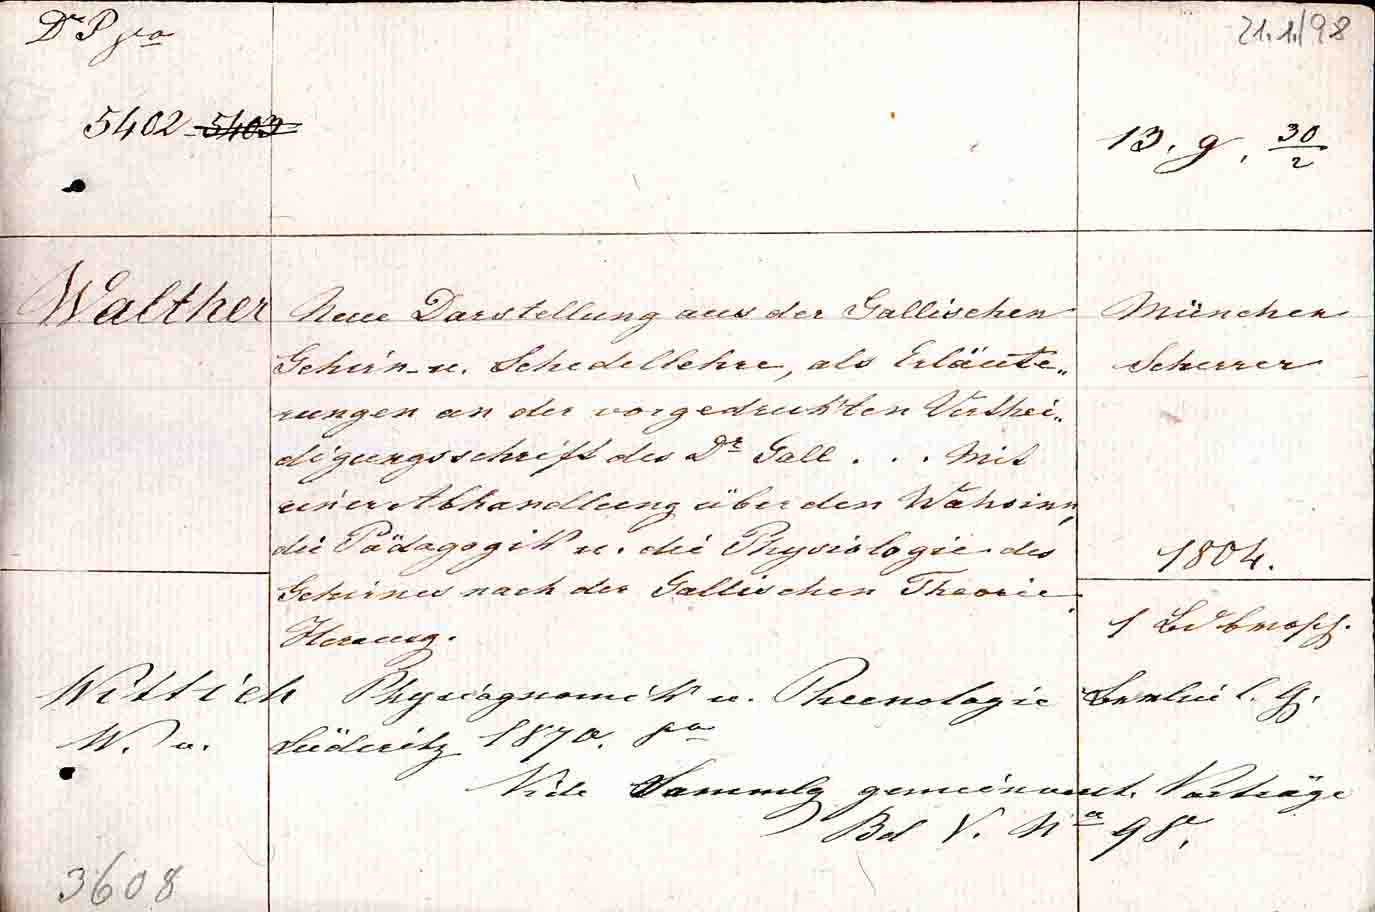 21.1./98
5402 - 5403
13. g. 30/2
Walther
Neue Darstellung aus der Gallischen
Gehirn- u. Schedellehre, als Erläute„
rungen an der vorgedruckten Verthei„
digungsschrift des Dr Gall . . . Mit
einer Abhandlung über den Wahsinn,
die Pädagogik u. die Physiologie des
Gehirnes nach der Gallischen Theorie.
Herausg.
München
Scherrer
1804.
Wittich Physiognomik u. Phrenologie
W. v. Lüderitz 1870. Berlin
Vide Sammlg gemeinverst. Vorträge
Bd V. No 98.
3608